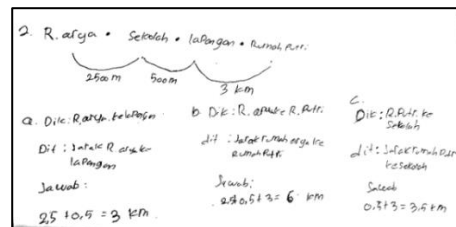 2. R. arya • Sekolah • lapangan • Rumah Putri
2500m 500m 3 km
a. Dik: R. arya ke lapangan
Dit: Jarak R. arya ke
lapangan
Jawab:
2,5 + 0,5 = 3 km.
b. Dik: R. arya ke R. Putri
dit: Jarak rumah arya ke
Rumah Putri
Jawab:
2,5+0,5+3= 6 km
c.
Dik: R. Putri ke
Sekolah
dit: Jarak rumah Putri
ke sekolah
Jawab
0,5+3= 3,5 km